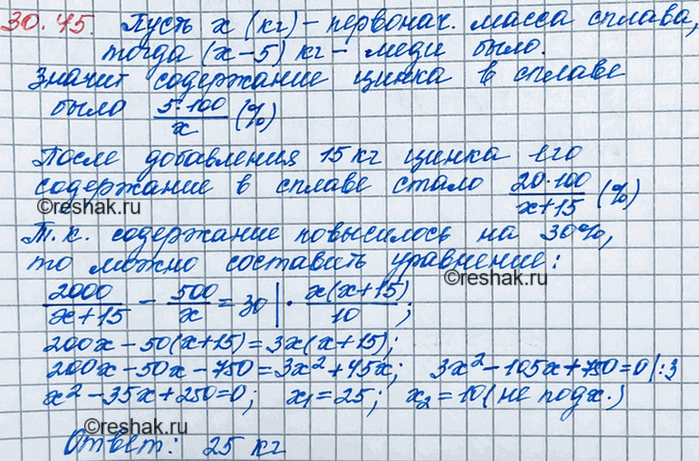 30.45. Пусть x (кг) – первонач. масса сплава,
тогда (x-5) кг – меди было.
Значит содержание цинка в сплаве
было 5·100/x (%)
После добавления 15 кг цинка его
содержание в сплаве стало 20·100/x+15 (%)
©reshak.ru
Т.к. содержание повысилось на 30%,
то можно составить уравнение:
©reshak.ru
2000/x+15 - 500/x = 30 | · x(x+15)/10;
200x - 50(x+15) = 3x(x+15);
200x - 50x - 750 = 3x² + 45x; 3x² - 105x + 750 = 0 |:3
x² - 35x + 250 = 0; x₁ = 25; x₂ = 10 (не подх.)
Ответ: 25 кг
©reshak.ru